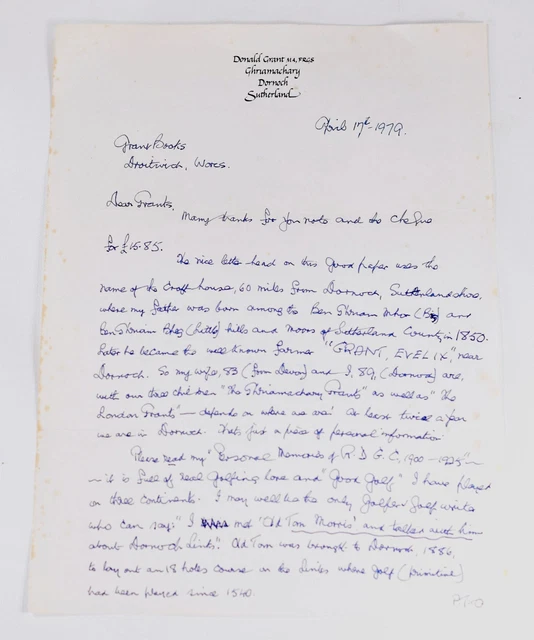 Donald Grant M.A, FRGS
Ghriamachary
Dornoch
Sutherland
April 17th 1979.
Grant Books
Droitwich, Worcs.
Dear Grants,
Many thanks for your note and the cheque
for £15.85.
The nice letter head on this good paper uses the
name of the croft house, 60 miles from Dornoch, Sutherlandshire,
where my father was born among the Ben Ghriam Mhor (Big) and
Ben Ghriam Bheg (little) hills and moors of Sutherland County in 1850.
Later he became the well known farmer "GRANT, EVELIX", near
Dornoch. So my wife, 83 (from Devon) and I, 89, (Dornoch) are,
with our three children "The Ghriamachary Grants" as well as "The
London Grants" — depends on where we are! At least twice a year
we are in Dornoch. That's just a piece of personal information.
Please read my "Personal Memories of R.D.G.C, 1900-1925" —
— it is full of real golfing lore and "Good Golf" I have played
on three continents. I may well be the only Golfer Golf writer
who can say: "I met 'Old Tom Morris' and talked with him
about Dornoch Links". Old Tom was brought to Dornoch, 1886,
to lay out an 18 holes course on the links where golf (primitive)
had been played since 1540.
P.T.O